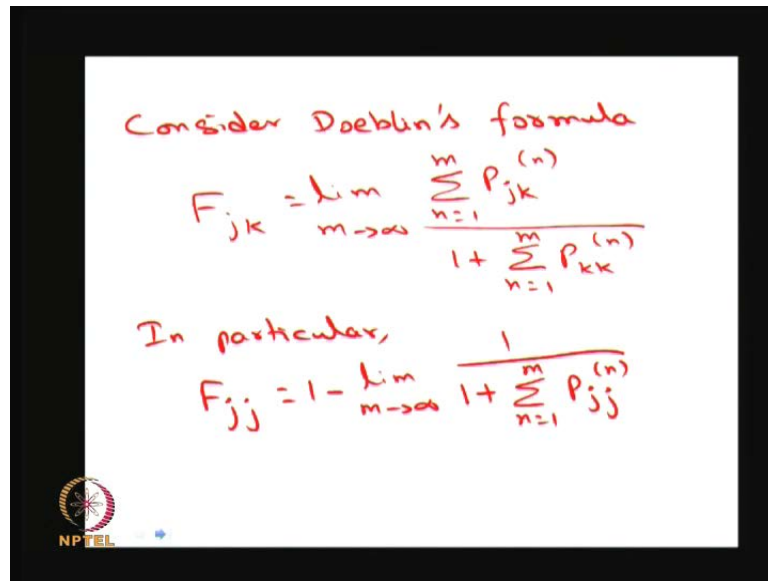 Consider Doeblin's formula
F_{jk} = lim_{m→∞} \frac{\sum_{n=1}^{m} P_{jk}^{(n)}}{1 + \sum_{n=1}^{m} P_{kk}^{(n)}}
In particular,
F_{jj} = 1 - lim_{m→∞} \frac{1}{1 + \sum_{n=1}^{m} P_{jj}^{(n)}}
NPTEL